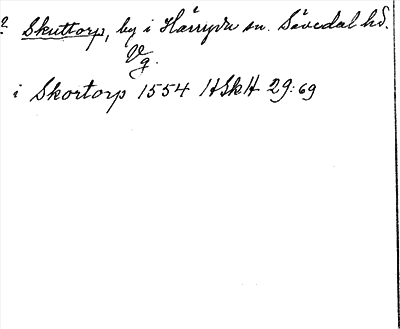 ? Skuttorp, by i Härryda sn. Sävedal hd.
Vg.
i Skortorp 1554 HSkH 29:69